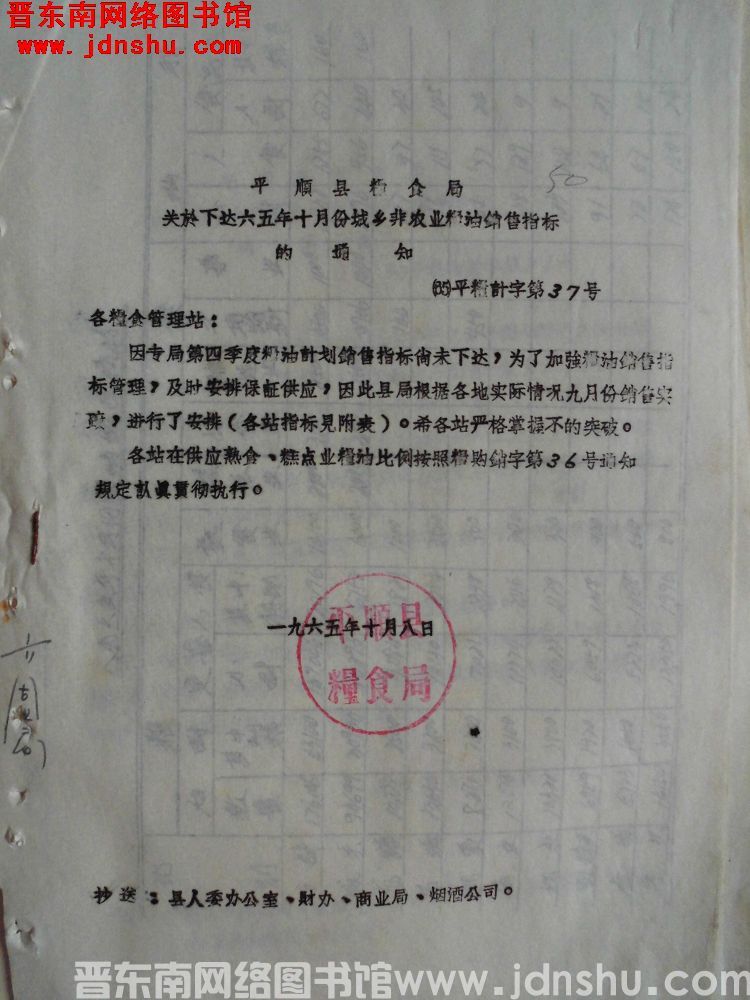 晋东南网络图书馆
www.jdnshu.com
50
平順县粮食局
关於下达六五年十月份城乡非农业粮油銷售指标
的通知
(65)平糧計字第37号
各糧食管理站：
因专局第四季度粮油計划銷售指标尚未下达，为了加強粮油銷售指
标管理，及时安排保証供应，因此县局根据各地实际情况九月份銷售实
际，进行了安排（各站指标見附表）。希各站严格掌握不的突破。
各站在供应熟食、糕点业糧油比例按照糧购銷字第36号通知
規定認眞貫彻执行。
一九六五年十月八日
平順县
糧食局
抄送：县人委办公室、財办、商业局、烟酒公司。
晋东南网络图书馆www.jdnshu.com